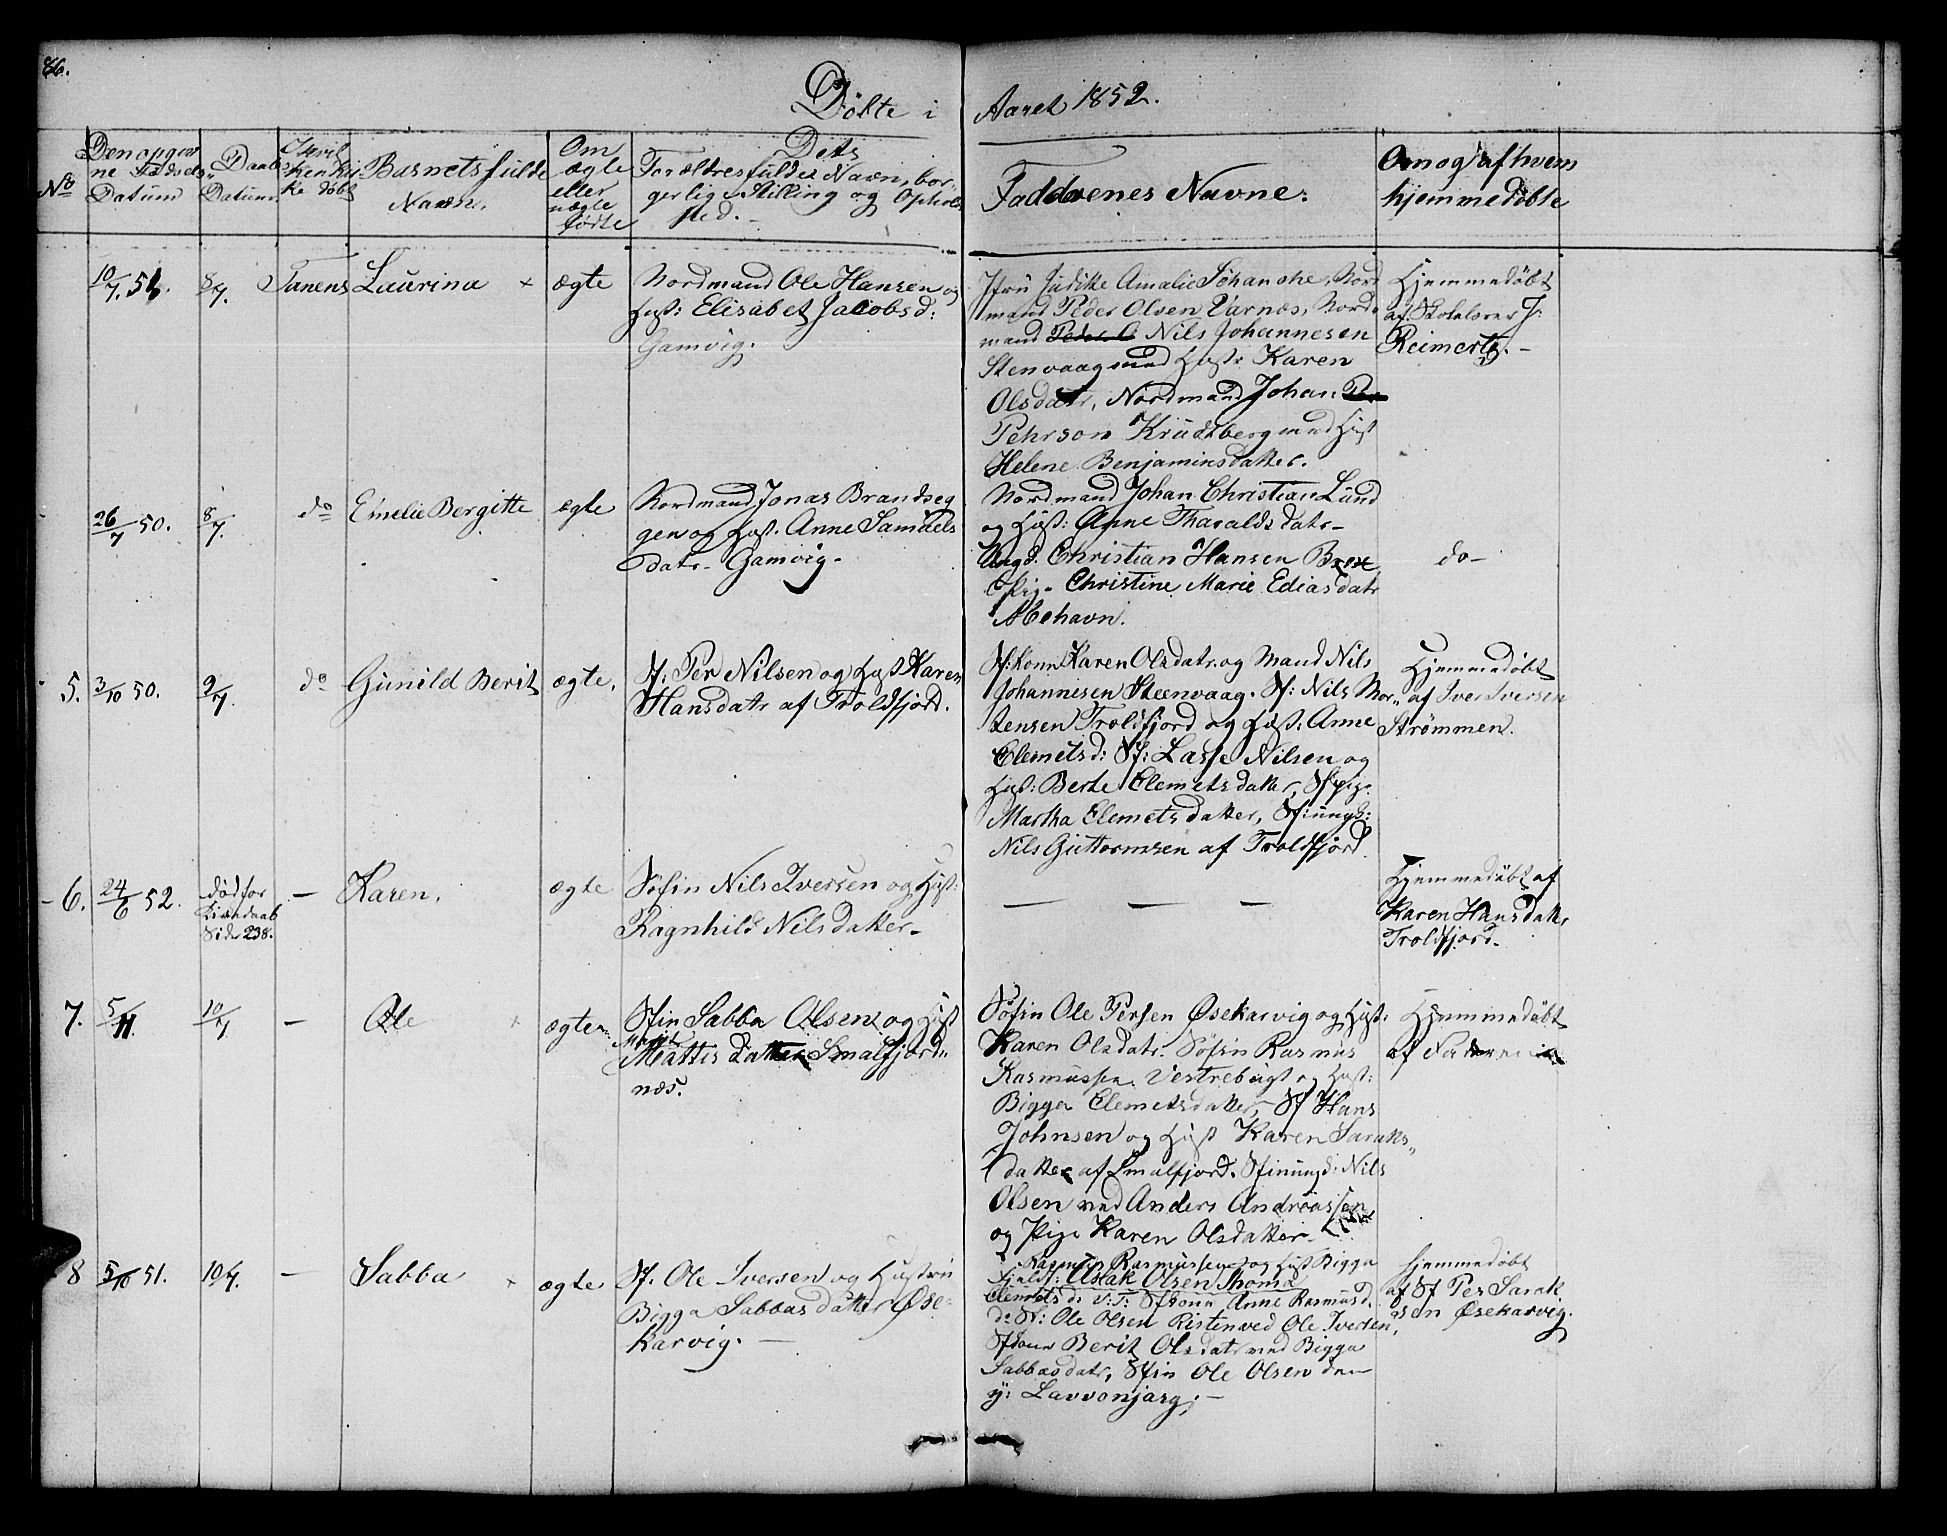 86.
Döbte i Aaret 1852.
No
Den opgivne Fødsels Datum
Daabs Datum
I hvilken Kirke døbt
Barnets fulde Navn.
Om ægte eller uægte fødte
Dets Forældres fulde Navn, borgerlige Stilling og Opholdsted.
Faddernes Navne.
Om og af hvem hjemmedöbte
10/7. 51. 8/7. Tanens Laurina × ægte
Nordmand Ole Hansen og
Hust: Elisabet Jacobsd:
Gamvig.
Jfru Amalie Schanche, Nord
mand Peder Olsen Varnæs, Nord-
mand Peder O Nils Johannesen
Stenvaag med Hustr Karen
Olsdatr, Nordmand Johan Per
Pehrson Krudtberg med Hust
Helene Benjaminsdatter.
Hjemmedöbt
af Skolelærer J:
Reimertz. -
26/7 50. 8/7. do Emelie Bergitte ægte
Nordmand Jonas Brandseg
gen og Hust. Anne Samuels
datr. Gamvig.
Nordmand Johan Christian Lund
og Hust: Anne Tharaldsdatr-
Ungd. Christian Hansen
Christine Marie Ediasdatr
Mehavn.
do-
5. 3/10 50. 9/7. do Gunild Berit ægte.
Sf: Per Nilsen og Hust Karen
Hansdatr af Troldfjord.
Sf:konn Karen Olsdatr. og Mand Nils
Johannesen Steenvaag. Sf: Nils Mor-
tensen Troldfjord og Hust: Anne
Clemetsd: Sf: Lasse Nilsen og
Hust: Berte Clemetsdatter, Sfpig.
Martha Clemetsdatter, Sf:ungk:
Nils Guttormsen af Troldfjord
Hjemmedöbt
af Iver Iversen
Strömmen.
6. 24/6 52. død for
Side 238. - Karen. ægte
Söfin Nils Iversen og Hust:
Ragnhild Nilsdatter.
— — —
Hjemmedöbt af
Karen Hansdattr
Troldfjord.
7. 5/11. 10/7 - Ole × ægte
Sfin Sabba Olsen og Hust
Marit
Mattisdatter Smalfjord-
næs.
Söfin Ole Persen Øsekarvig og Hust:
Karen Olsdatr. Söfin Rasmus
Rasmussen Vestrebugt og Hust:
Bigga Clemetsdatter, Sf Hans
Johnsen og Hust Karen Saraks-
datter af Smalfjord. Sfinungd: Nils
Olsen ved Anders Andreassen
og Pige Karen Olsdatter
Hjemmedöbt
af Faderen
8 5/10 51. 10/7. - Sabba × ægte
Sf. Ole Iversen og Hustru
Bigga Sabbasdatter Øse-
karvig. -
Rasmus Rasmussen og Hust Bigga
Fjeldf: Aslak Olsen Thoma
Clemetsd: V:T: Sfkonn Anne Rasmusd.
do Sf: Ole Olsen Risten ved Ole Iversen,
Sfkonn Berit Olsdatr ved Bigga
Sabbasdatr, Sfin Ole Olsen den
y: Lavvonjarg; -
Hjemmedöbt
af Sf Per Sarak
sen Øsekarvig.